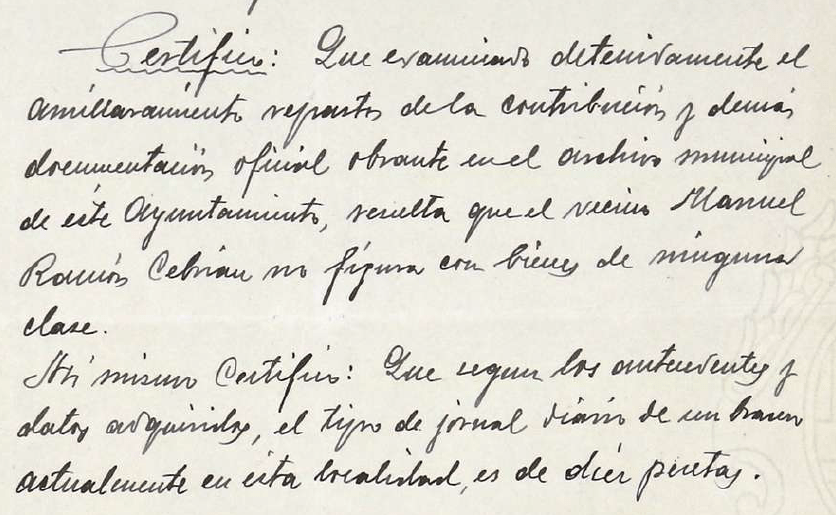 Certifico: Que examinado detenidamente el
amillaramiento repartos de la contribución y demás
documentación oficial obrante en el archivo municipal
de éste Ayuntamiento, resulta que el vecino Manuel
Ramón Cebrián no figura con biénes de ninguna
clase.
Asi mismo Certifico: Que segun los antecedentes y
datos adquiridos, el tipo de jornal diário de un bracero
actualmente en ésta localidad, es de diéz pesetas.